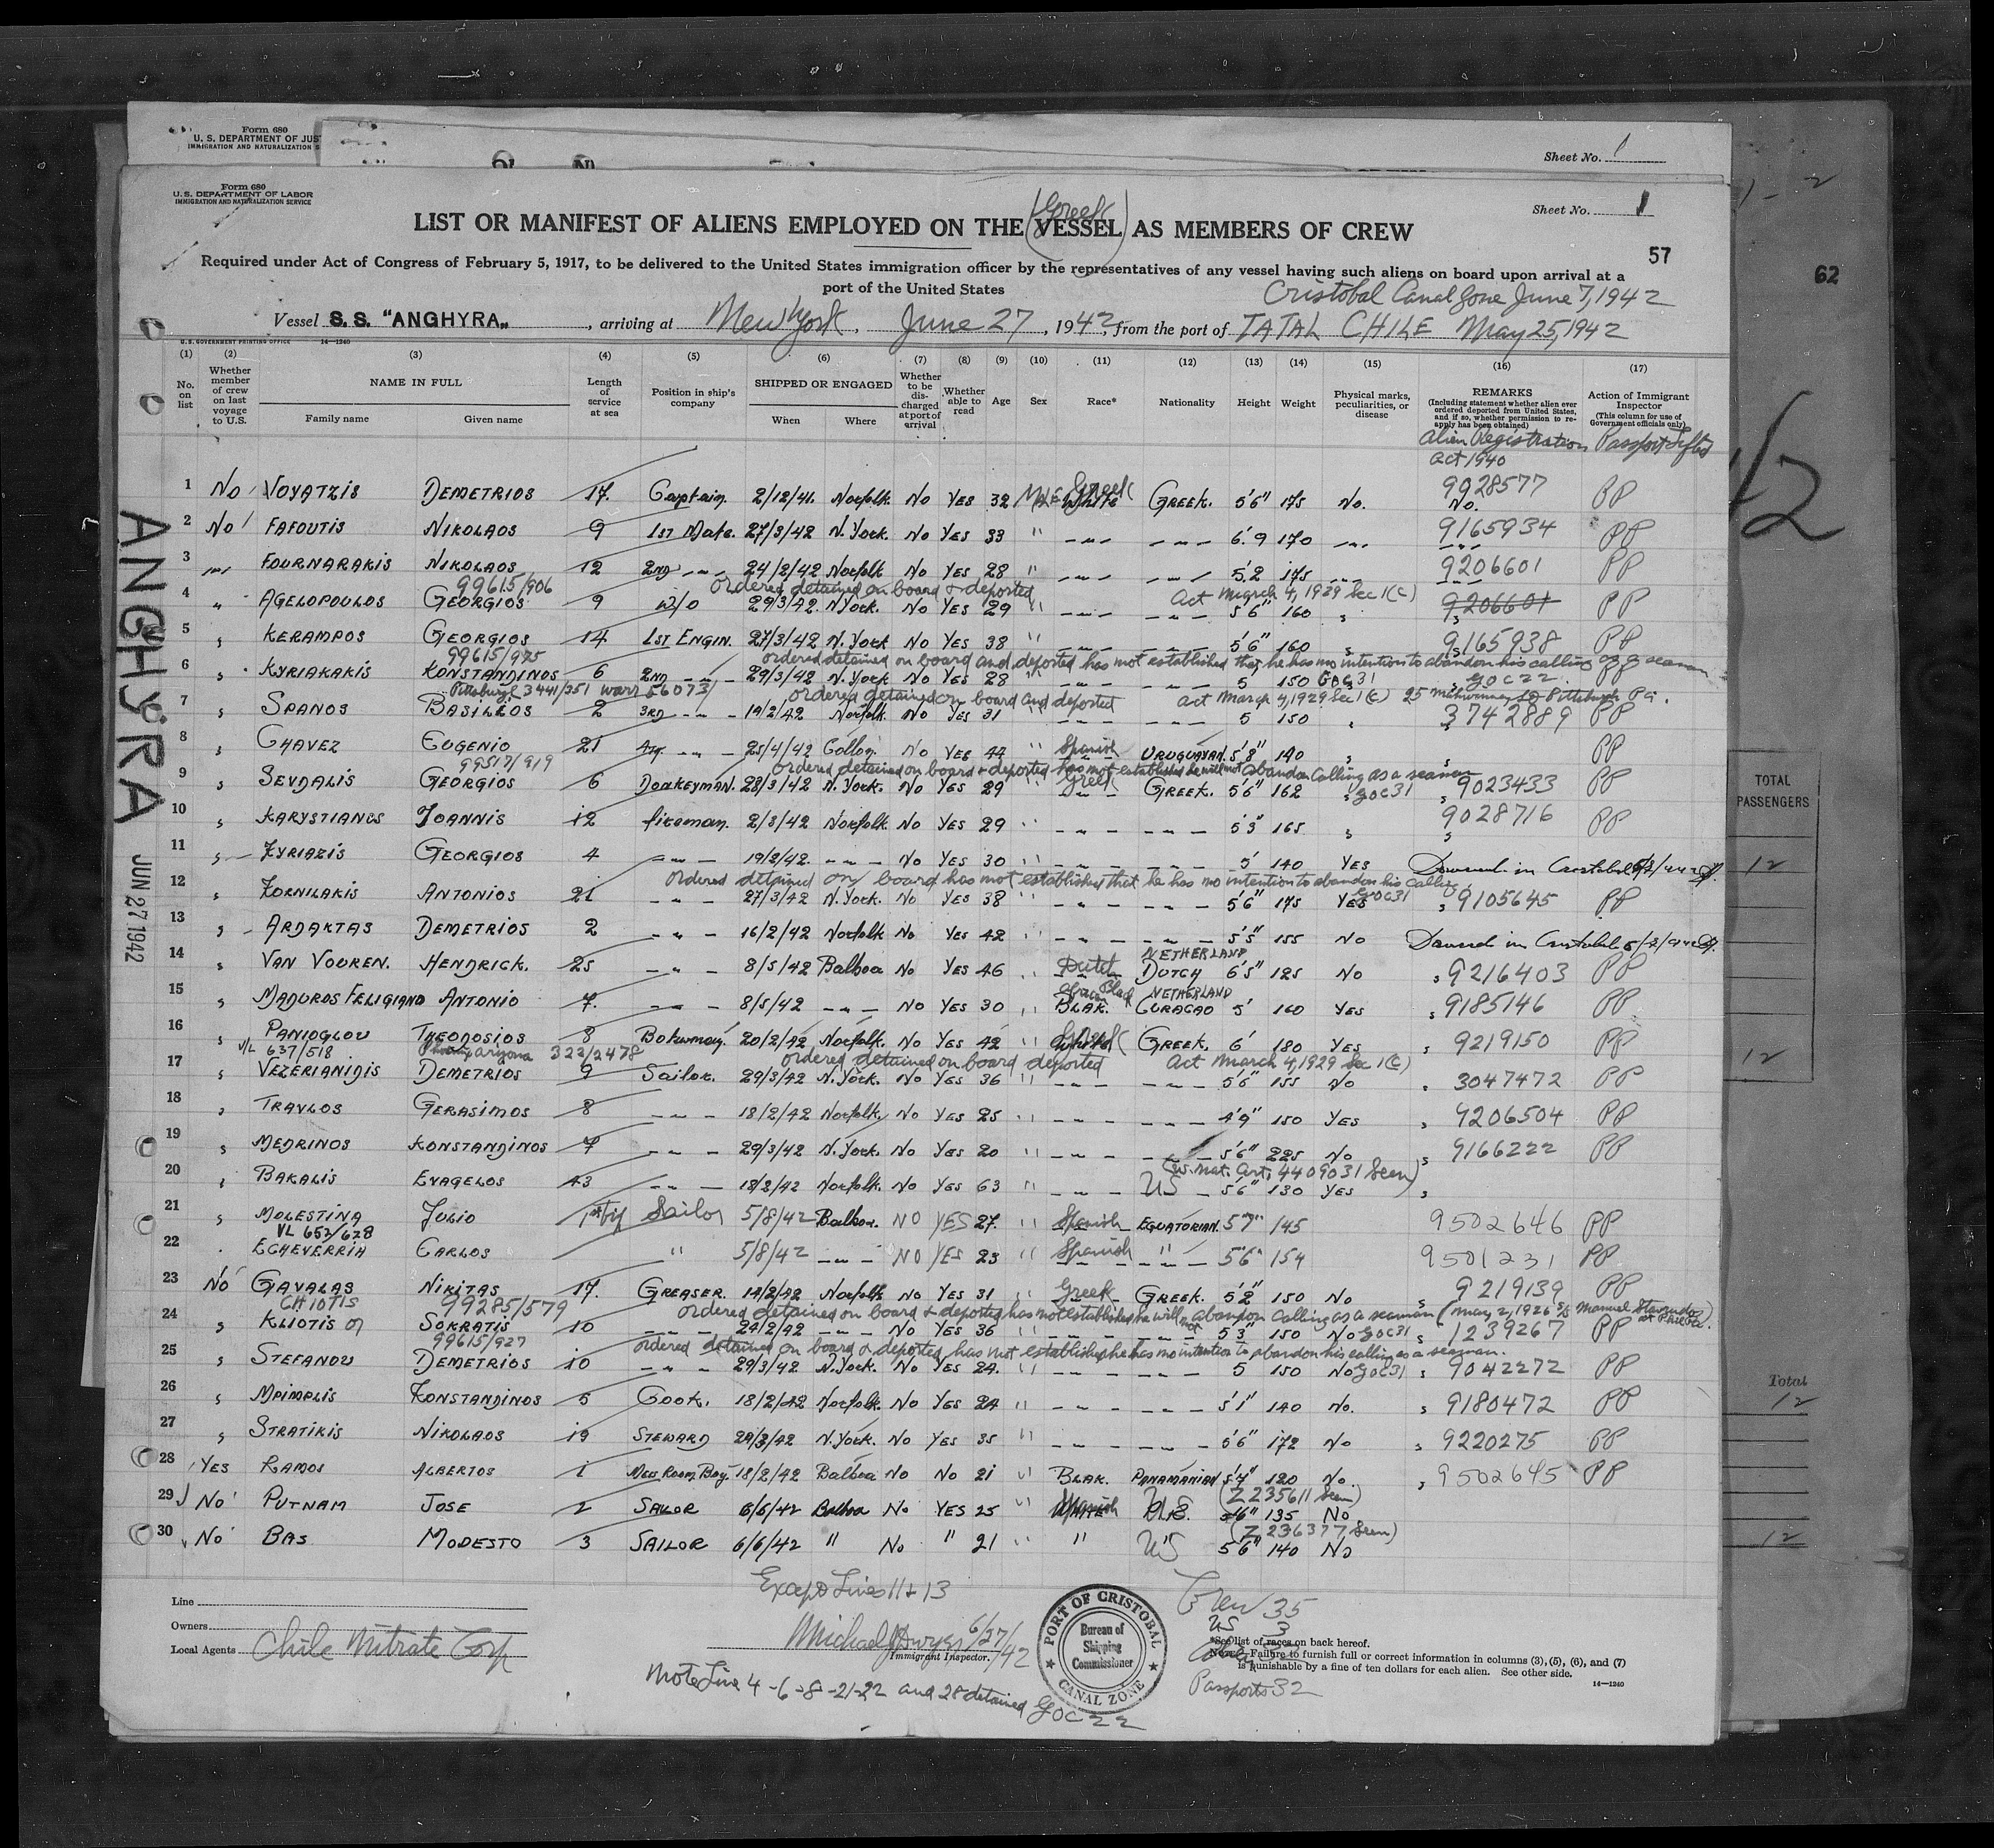 Form 680
U. S. DEPARTMENT OF JUS
IMMIGRATION AND NATURALIZATION S
Sheet No. 1
Form 680
U. S. DEPARTMENT OF LABOR
IMMIGRATION AND NATURALIZATION SERVICE
Sheet No. 1
(Greek)
LIST OR MANIFEST OF ALIENS EMPLOYED ON THE VESSEL AS MEMBERS OF CREW
57
62
Required under Act of Congress of February 5, 1917, to be delivered to the United States immigration officer by the representatives of any vessel having such aliens on board upon arrival at a
port of the United States
Cristobal Canal Zone June 7, 1942
Vessel S. S. "ANGHYRA", arriving at New York, June 27, 1942, from the port of TATAL CHILE May 25, 1942
U. S. GOVERNMENT PRINTING OFFICE 14—1240
(1) (2) (3) (4) (5) (6) (7) (8) (9) (10) (11) (12) (13) (14) (15) (16) (17)
No. on list Whether member of crew on last voyage to U.S. NAME IN FULL Family name Given name Length of service at sea Position in ship's company SHIPPED OR ENGAGED When Where Whether to be discharged at port of arrival Whether able to read Age Sex Race* Nationality Height Weight Physical marks, peculiarities, or disease REMARKS (Including statement whether alien ever ordered deported from United States, and if so, whether permission to reapply has been obtained) Action of Immigrant Inspector (This column for use of Government officials only)
Alien Registration Act 1940 Passport Lifted
1 No VOYATZIS DEMETRIOS 17 Captain. 2/12/41. Norfolk. No YES 32 MALE White Greek GREEK. 5'6" 175 No. 9928577 No. PP
2 No FAFOUTIS NIKOLAOS 9 1ST Mate. 27/3/42 N. York. No YES 33 " 6'.9 170 9165934 PP
3 FOURNARAKIS NIKOLAOS 12 2ND 24/2/42 Norfolk No YES 28 " 5'.2 175 9206601 PP
99615/906 ordered detained on board & deported Act March 4, 1929 Sec 1(c)
4 " AGELOPOULOS GEORGIOS 9 W/O 29/3/42. N.York. No YES 29 " 5'6" 160 9206601 PP
5 KERAMPOS GEORGIOS 14 1ST ENGIN. 27/3/42 N. York No YES 38 " 5'6" 160 9165938 PP
99615/925 ordered detained on board and deported has not established that he has no intention to abandon his calling of a seaman
6 KYRIAKAKIS KONSTANDINOS 6 2ND 29/3/42 N. York No YES 28 " 5 150 GOC31 GOC22 PP
Pittsburgh 3441/351 Warr 56073 ordered detained on board and deported act March 4, 1929 Sec 1(c)
7 SPANOS BASILIOS 2 3RD 19/2/42 Norfolk. No YES 31 " 5 150 3742889 PP
8 CHAVEZ EUGENIO 21 25/4/42 Collon. No YES 44 " Spanish URUGUAYAN. 5'8" 140 PP
99517/919 ordered detained on board & deported has not established he will not abandon calling as a seaman
9 SEVDALIS GEORGIOS 6 DONKEYMAN. 28/3/42 N. York. No YES 29 " Greek GREEK. 5'6" 162 GOC31 9023433 PP
10 KARYSTIANOS IOANNIS 12 fireman. 2/3/42 Norfolk No YES 29 " 5'3" 165 9028716 PP
11 KYRIAZIS GEORGIOS 4 19/2/42. No YES 30 " 5' 140 YES
ordered detained on board has not established that he has no intention to abandon his calling
12 KORNILAKIS ANTONIOS 21 27/3/42 N. York. No YES 38 " 5'6" 175 YES GOC31 9105645 PP
13 ARDAKTAS DEMETRIOS 2 16/2/42 Norfolk No YES 42 " 5'5" 155 No
14 VAN VOUREN. HENDRICK. 25 8/5/42 Balboa No YES 46 " Dutch NETHERLAND DUTCH 6'5" 125 No 9216403 PP
15 MADUROS FELIGIANO ANTONIO 7. 8/5/42 No YES 30 " BLAK. NETHERLAND CURACAO 5' 160 YES 9185146 PP
16 PANIOGLOU THEODOSIOS 8 20/2/42 Norfolk. No YES 42 " Greek GREEK. 6' 180 YES 9219150 PP
V/L 637/518 Phoenix arizona 322/2478 ordered detained on board deported Act March 4, 1929 Sec 1(c)
17 VEZERIANIDIS DEMETRIOS 9 Sailor. 29/3/42 N. York. No YES 36 " 5'6" 155 No 3047472 PP
18 TRAVLOS GERASIMOS 8 18/2/42 Norfolk. No YES 25 " 4'9" 150 YES 9206504 PP
19 MEDRINOS KONSTANDINOS 7 29/3/42 N. York. No YES 20 " 5'6" 225 No 9166222 PP
(US. nat. Cert. 4409031 Seen)
20 BAKALIS EVAGELOS 43 18/2/42 Norfolk. No YES 63 " US 5'6" 130 YES
21 MOLESTINA JULIO 1st trip Sailor 5/8/42 Balboa. NO YES 27. " Spanish EQUATORIAN. 5"7" 145 9502646 PP
VL 652/628
22 ECHEVERRIA CARLOS " 5/8/42 NO YES 23 " Spanish " 5"6" 154 9501231 PP
23 No GAVALAS NIKITAS 17. GREASER. 14/2/42 Norfolk No YES 31 " Greek GREEK. 5'2" 150 No 9219139 PP
CHIOTIS 99285/579 ordered detained on board & deported has not established he will not abandon calling as a seaman
24 KLIOTIS or SOKRATIS 10 24/2/42 No YES 36 " 5 3" 150 No GOC31 1239267 PP
99615/927 ordered detained on board & deported, has not established he has no intention to abandon his calling as a seaman.
25 STEFANOU DEMETRIOS 10 29/3/42 N. York. No YES 24. " 5 150 No GOC31 9042272 PP
26 MPIMPLIS KONSTANDINOS 5 Cook. 18/2/42 Norfolk No YES 24 " 5'1" 140 No. 9180472 PP
27 STRATIKIS NIKOLAOS 19 STEWARD 29/3/42 N. York. No YES 35 " 5'6" 172 No 9220275 PP
28 YES RAMOS ALBERTOS 1 Mess Room Boy. 18/2/42 Balboa No No 21 " BLAK. PANAMANIAN 5'4" 120 No. 9502645 PP
29 No PUTNAM JOSE 2 SAILOR 6/6/42 Balboa No YES 25 " Spanish U.S. (Z 235611 Seen) 5'6" 135 No
30 No BAS MODESTO 3 SAILOR 6/6/42 " No " 21 " " US (Z 236377 Seen) 5'6" 140 No
Except Lines 11 & 13
Line
Owners
Local Agents Chile Nitrate Corp
Michael J Dwyer 6/27/42
Immigrant Inspector.
Note Line 4-6-8-21-22 and 28 detained GOC 22
PORT OF CRISTOBAL
Bureau of Shipping Commissioner
CANAL ZONE
Crew 35
US 3
Passports 32
*See list of races on back hereof.
NOTE.—Failure to furnish full or correct information in columns (3), (5), (6), and (7)
is punishable by a fine of ten dollars for each alien. See other side.
14—1240
ANGHYRA
JUN 27 1942
1/2
TOTAL
PASSENGERS
12
12
Total
12
12